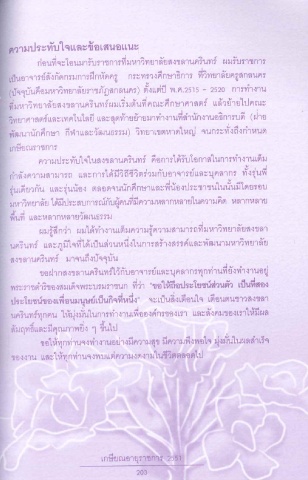 ความประทับใจและข้อเสนอแนะ
ก่อนที่จะโอนมารับราชการที่มหาวิทยาลัยสงขลานครินทร์ ผมรับราชการ
เป็นอาจารย์สังกัดกรมการฝึกหัดครู กระทรวงศึกษาธิการ ที่วิทยาลัยครูสกลนคร
(ปัจจุบันคือมหาวิทยาลัยราชภัฏสกลนคร) ตั้งแต่ปี พ.ศ.2515 - 2520 การทำงาน
ที่มหาวิทยาลัยสงขลานครินทร์ผมเริ่มต้นที่คณะศึกษาศาสตร์ แล้วย้ายไปคณะ
วิทยาศาสตร์และเทคโนโลยี และสุดท้ายย้ายมาทำงานที่สำนักงานอธิการบดี (ฝ่าย
พัฒนานักศึกษา กีฬาและวัฒนธรรม) วิทยาเขตหาดใหญ่ จนกระทั่งถึงกำหนด
เกษียณราชการ
ความประทับใจในสงขลานครินทร์ คือการได้รับโอกาสในการทำงานเต็ม
กำลังความสามารถ และการได้มีวิถีชีวิตร่วมกับอาจารย์และบุคลากร ทั้งรุ่นพี่
รุ่นเดียวกัน และรุ่นน้อง ตลอดจนนักศึกษาและพี่น้องประชาชนในถิ่นมีโดยรอบ
มหาวิทยาลัย ได้มีประสบการณ์กับผู้คนที่มีความหลากหลายในความคิด หลากหลาย
พื้นที่ และหลากหลายวัฒนธรรม
ผมรู้สึกว่า ผมได้ทำงานเต็มความรู้ความสามารถที่มหาวิทยาลัยสงขลา
นครินทร์ และภูมิใจที่ได้เป็นส่วนหนึ่งในการสร้างสรรค์และพัฒนามหาวิทยาลัย
สงขลานครินทร์ มาจนถึงปัจจุบัน
ขอฝากสงขลานครินทร์ไว้กับอาจารย์และบุคลากรทุกท่านที่ยังทำงานอยู่
พระราชดำริของสมเด็จพระบรมราชชนก ที่ว่า "ขอให้ถือประโยชน์ส่วนตัว เป็นที่สอง
ประโยชน์ของเพื่อนมนุษย์เป็นกิจที่หนึ่ง" จะเป็นสิ่งเตือนใจ เตือนตนชาวสงขลา
นครินทร์ทุกคน ให้มุ่งมั่นในการทำงานเพื่อองค์กรของเรา และสังคมของเราให้มีผล
สัมฤทธิ์และมีคุณภาพยิ่ง ๆ ขึ้นไป
ขอให้ทุกท่านจงทำงานอย่างมีความสุข มีความพึงพอใจ มุ่งมั่นในผลสำเร็จ
ของงาน และให้ทุกท่านจงพบแต่ความงดงามในชีวิตตลอดไป
เกษียณอายุราชการ 2551
203